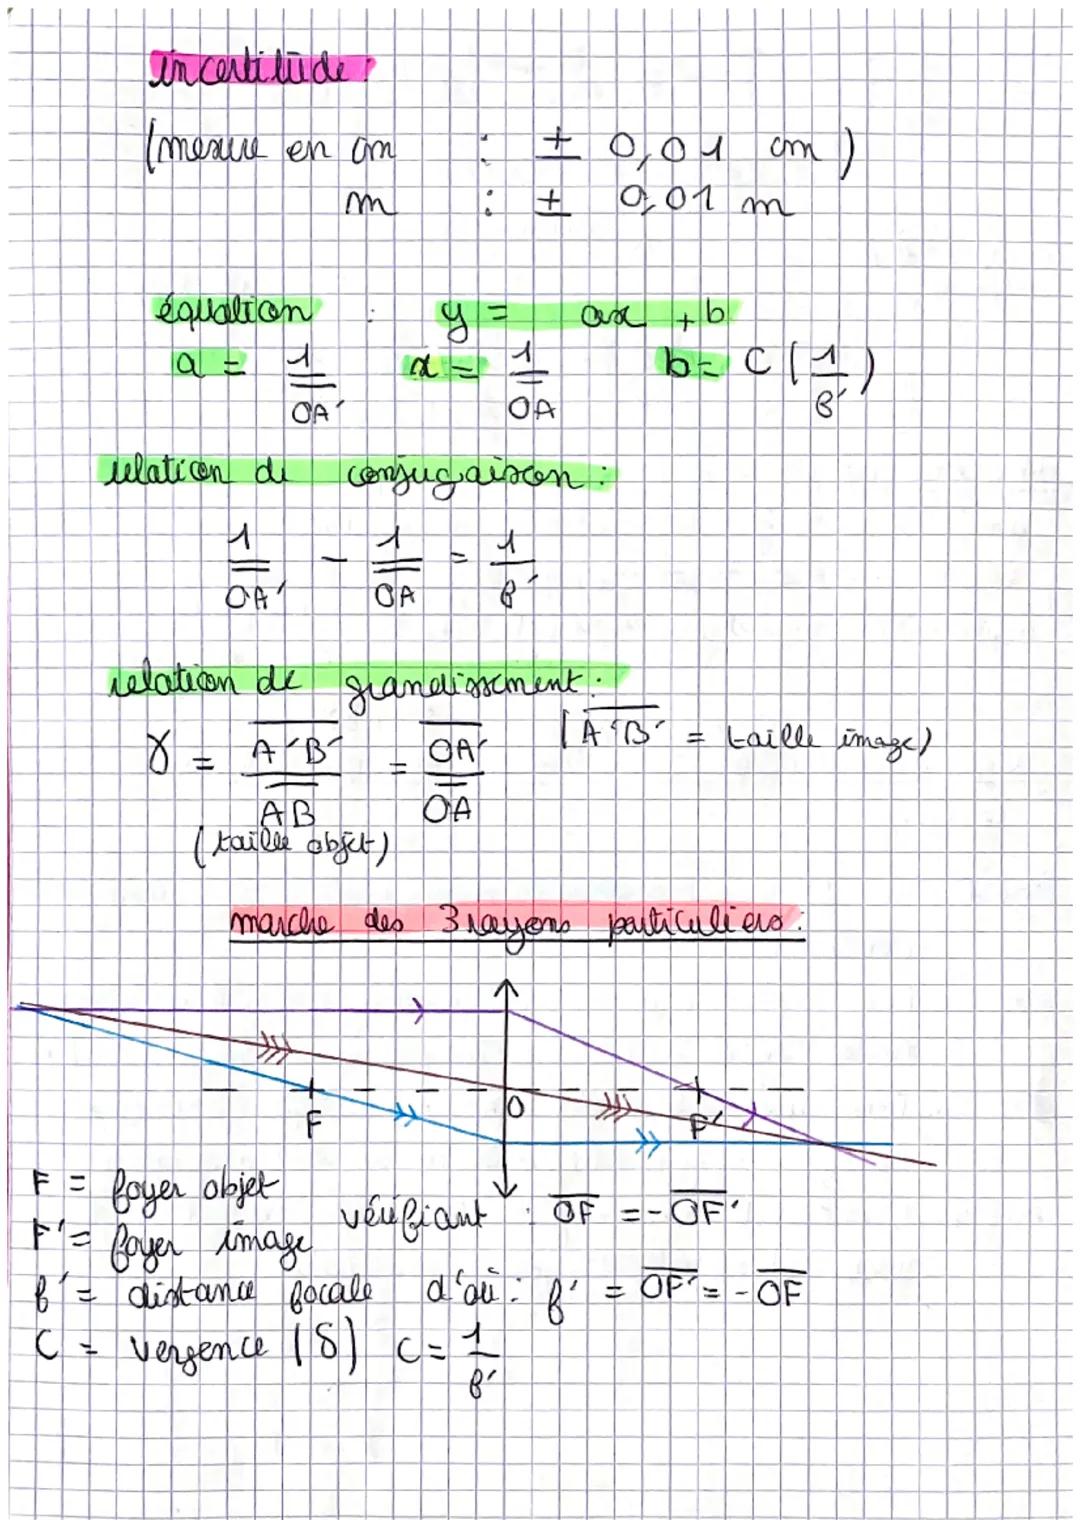 incertitude :
(mesure en cm : ± 0,01 cm)
m : ± 0,01 m
équation : y = ax + b
a = 1/OA' x = 1/OA b = C (1/f')
relation de conjugaison :
1/OA' - 1/OA = 1/f'
relation de grandissement :
γ = A'B'/AB = OA'/OA (A'B' = taille image)
(taille objet)
marche des 3 rayons particuliers :
F O F'
F = foyer objet
F' = foyer image vérifiant : OF = - OF'
f' = distance focale d'où : f' = OF' = - OF
C = vergence (δ) C = 1/f'